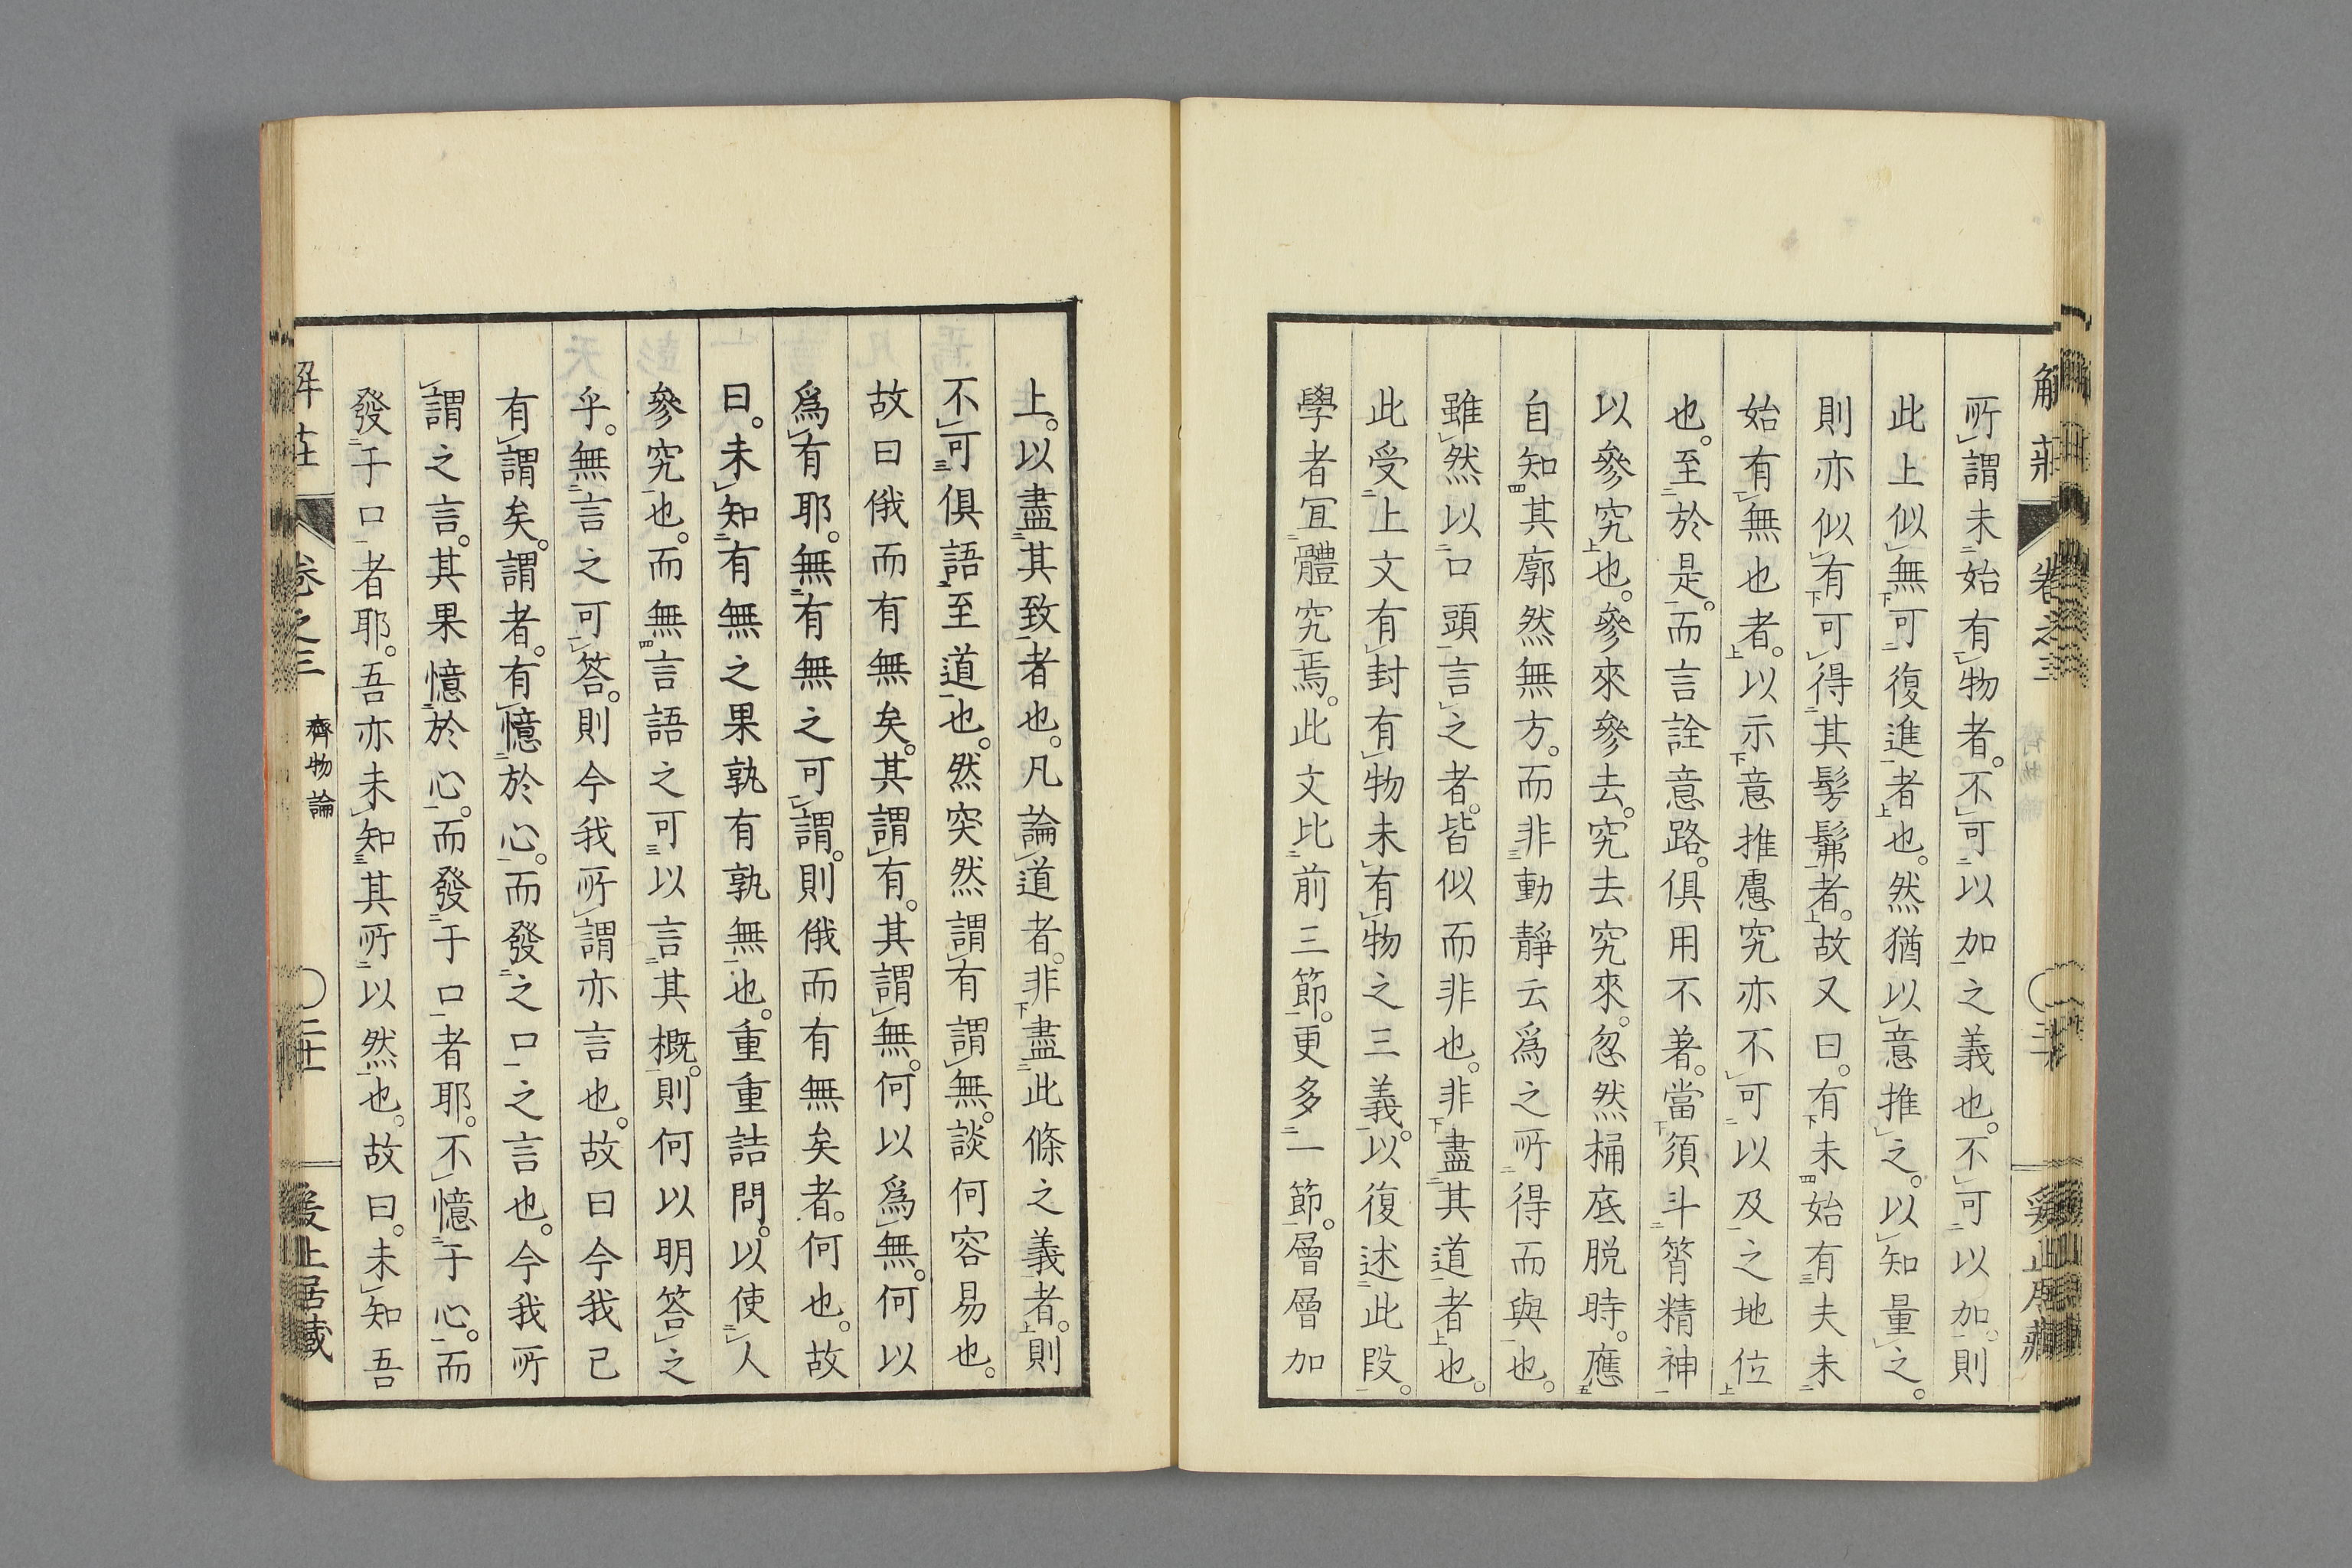 所謂未始有物者。不可以加之義也。不可以加。則
此上似無可復進者也。然猶以意推之。以知量之。
則亦似有可得其髣髴者。故又曰。有未始有夫未
始有無也者。以示意推慮究亦不可以及之地位
也。至於是。而言詮意路。俱用不著。當須斗筲精神
以參究也。參來參去。究去究來。忽然桶底脱時。應
自知其廓然無方。而非動靜云爲之所得而與也。
雖然以口頭言之者。皆似而非也。非盡其道者也。
此受上文有封有物未有物之三義。以復述此段。
學者宜體究焉。此文比前三節。更多一節。層層加
上。以盡其致者也。凡論道者。非盡此條之義者。則
不可俱語至道也。然突然謂有謂無。談何容易也。
故曰俄而有無矣。其謂有。其謂無。何以爲無。何以
爲有耶。無有無之可謂。則俄而有無矣者。何也。故
曰。未知有無之果孰有孰無也。重重詰問。以使人
參究也。而無言語之可以言其概。則何以明答之
乎。無言之可答。則今我所謂亦言也。故曰今我已
有謂矣。謂者。有憶於心。而發之口之言也。今我所
謂之言。其果憶於心。而發于口者耶。不憶于心。而
發于口者耶。吾亦未知其所以然也。故曰。未知吾
解莊
卷之三
齊物論